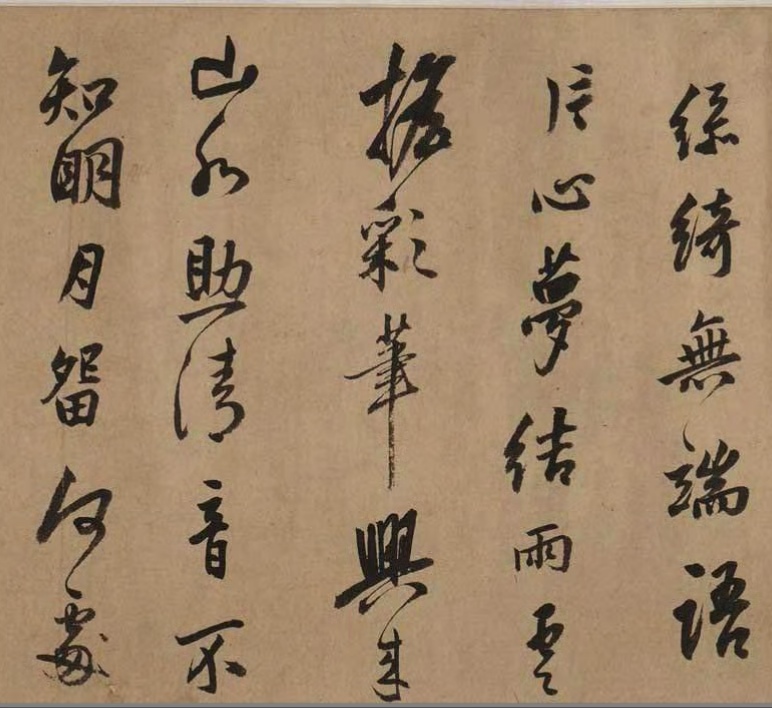 綠綺無端語
匠心夢結雨雲
攜彩筆興來
山水助清音不
知明月留何處